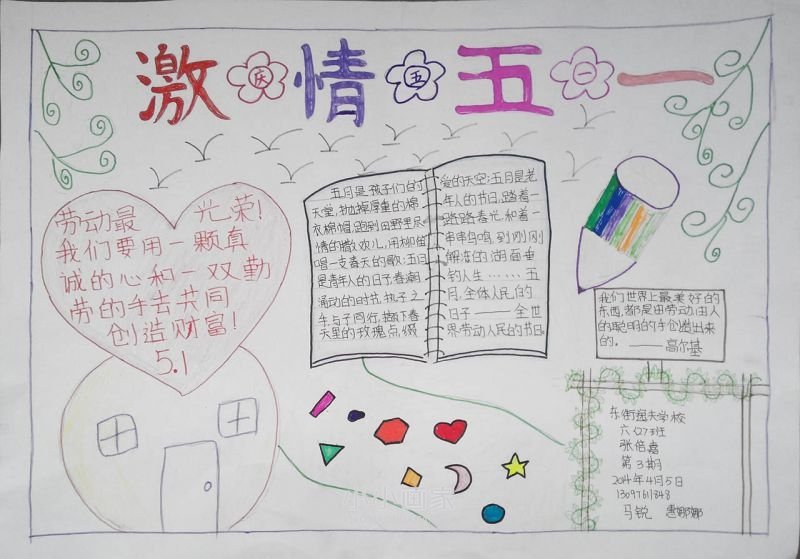 激情五一
庆五一
劳动最光荣!
我们要用一颗真
诚的心和一双勤
劳的手去共同
创造财富!
5.1
五月是孩子们的
天堂,抛掉厚重的棉
衣棉帽,跑到田野里尽
情的撒欢儿,用柳笛
唱一支春天的歌;五月
是青年人的日子,春潮
涌动的时节,执子之
手与子同行,撷下春
天里的玫瑰点缀
爱的天空;五月是老
年人的节日,踏着一
路踏春忙,和着一
串串鸟鸣,到刚刚
解冻的湖面垂
钓人生……五
月,全体人民的
日子——全世
界劳动人民的节日
我们世界上最美好的
东西,都是由劳动,由人
的聪明的手创造出来
的。——高尔基
东街逸夫学校
六(27)班
张倍嘉
第3期
2014年4月5日
马锐
小小画家